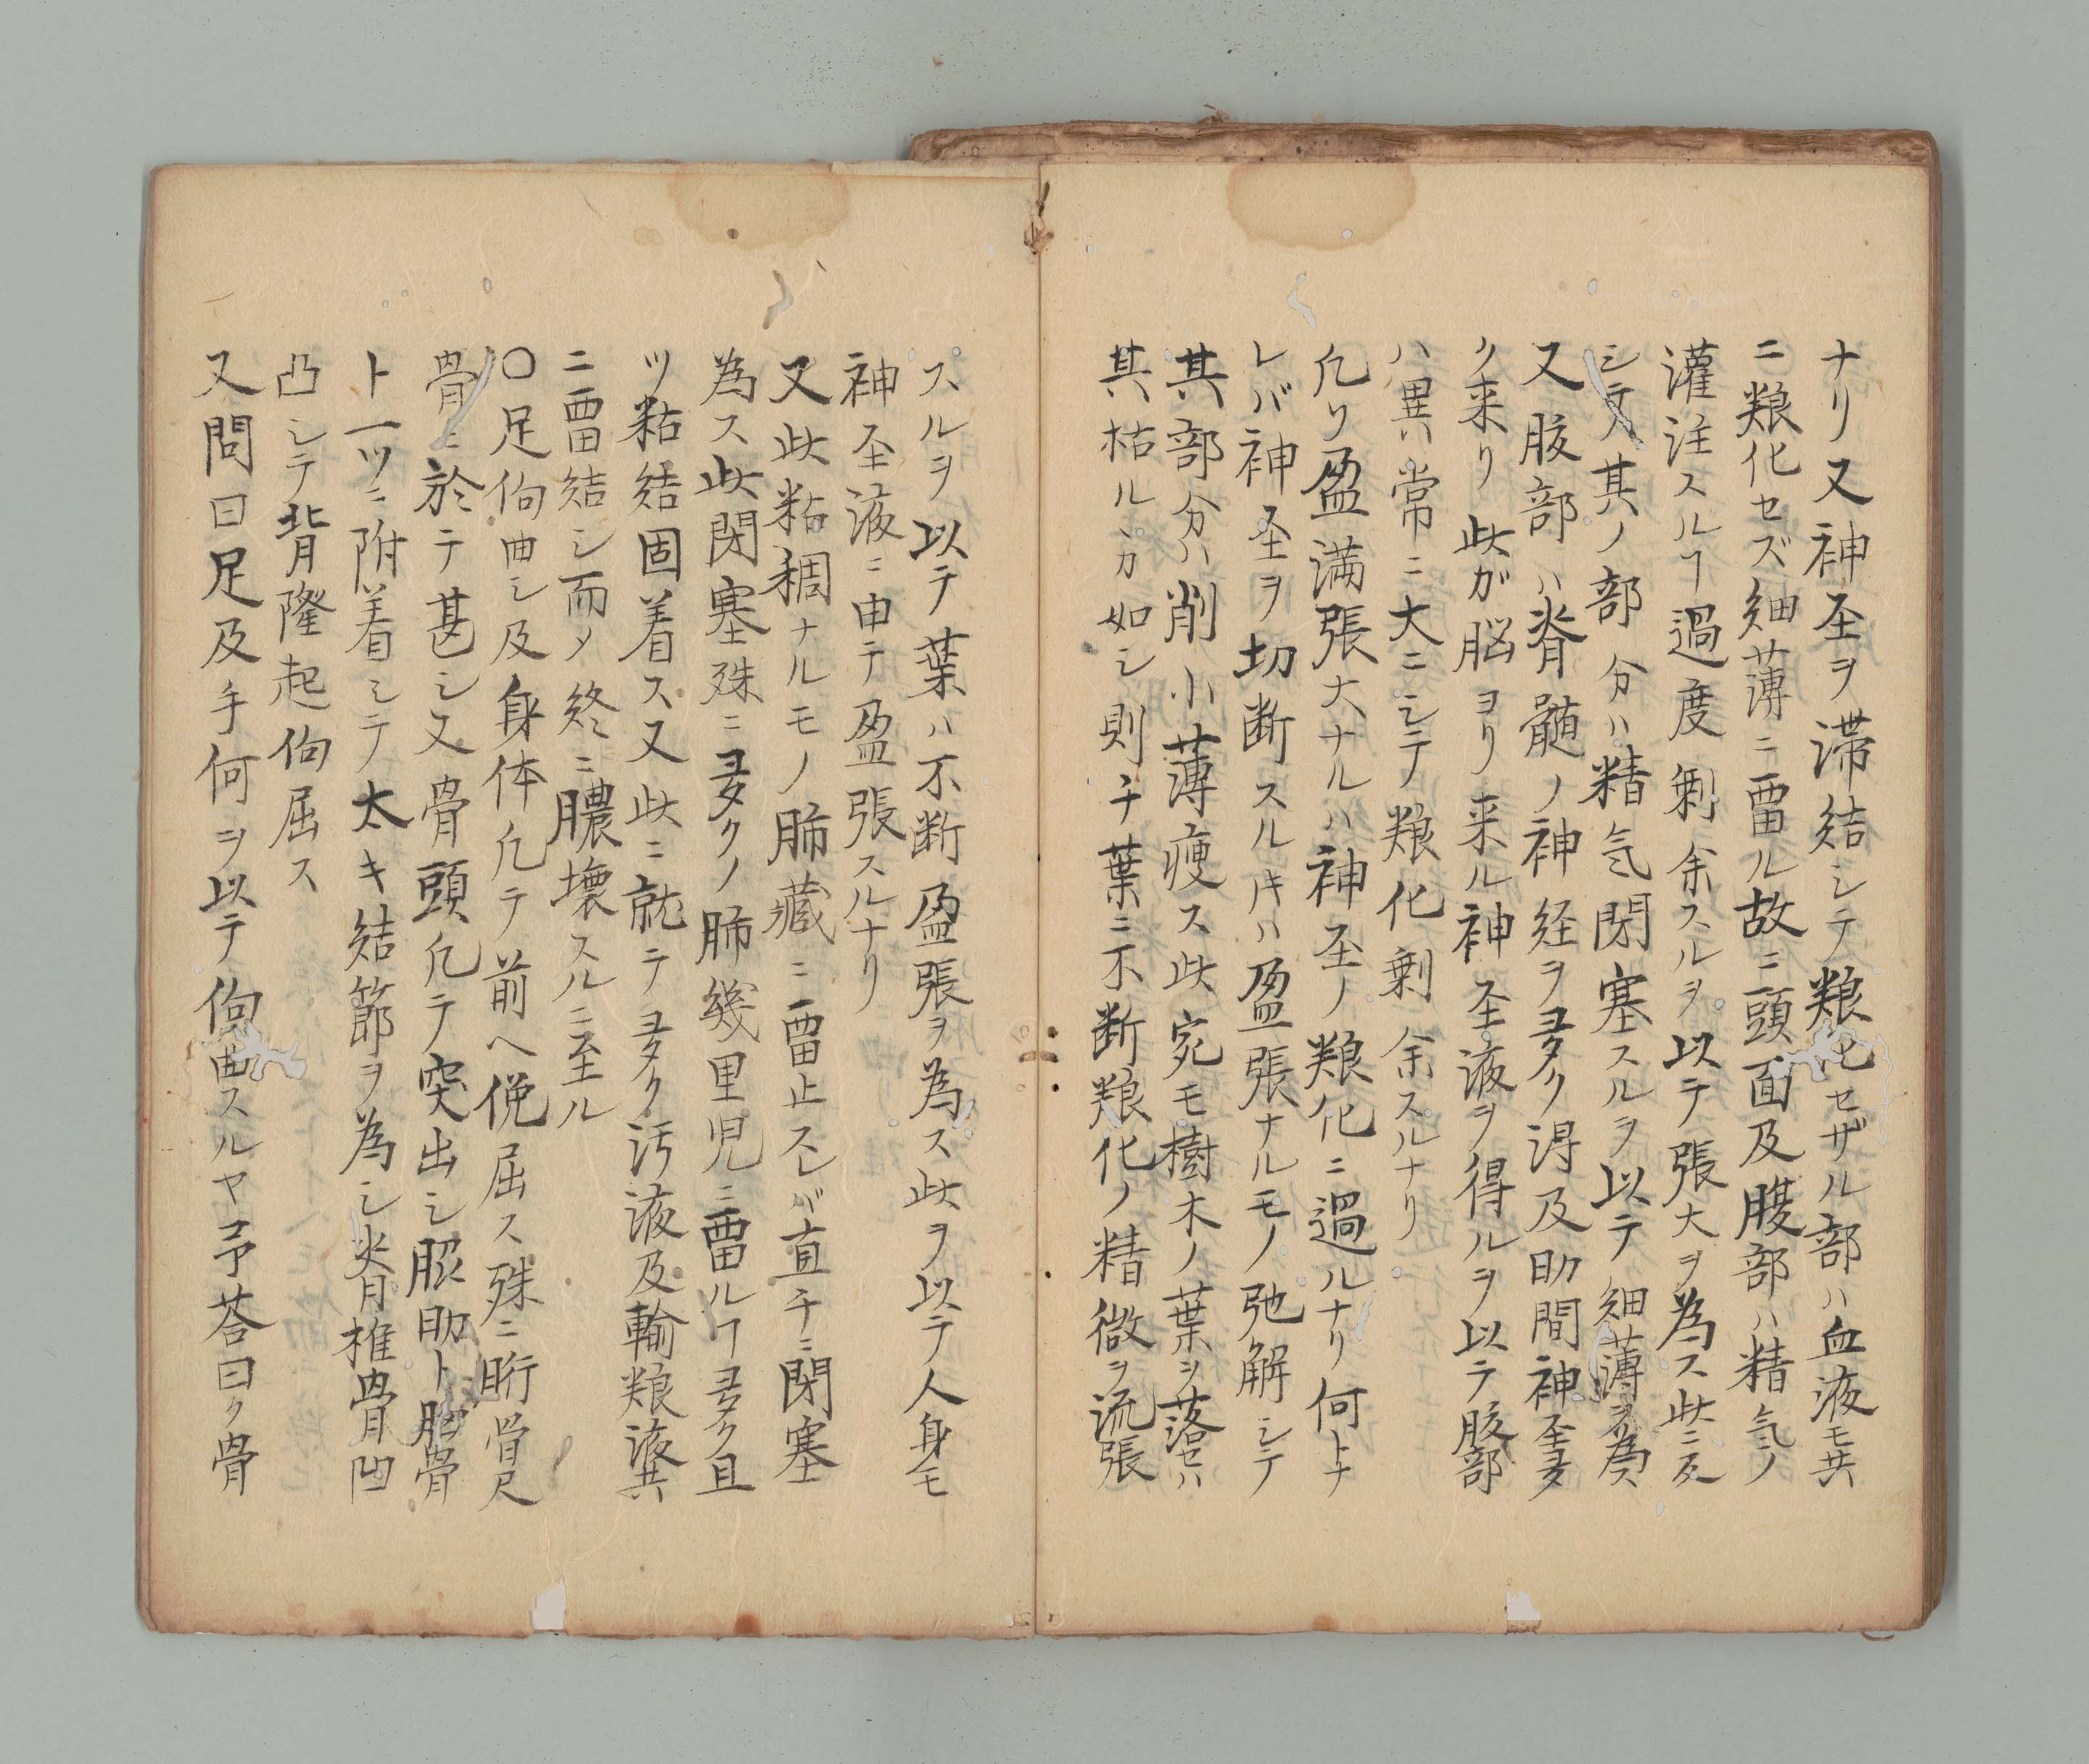 ナリ又神圣ヲ滞結シテ粮化セザル部ハ血液モ共
ニ粮化セズ細薄ニ畱ル故ニ頭面及腹部ハ精気ノ
灌注スルヿ過度剰余スルヲ以テ張大ヲ為ス此ニ反
シテ其ノ部分ハ精気閉塞スルヲ以テ細薄ヲ為ス
又腹部ハ脊髄ノ神経ヲ多ク得及肋間神圣多
ク来リ此が脳ヨリ来ル神圣液ヲ得ルヲ以テ腹部
ハ異常ニ大ニシテ粮化剰余スルナリ
凡リ盈満張大ナルハ神圣ノ粮化ニ過ルナリ何トナ
レバ神圣ヲ切断スルキハ盈張ナルモノ弛解シテ
其部分ハ削小薄痩ス此宛モ樹木ノ葉ヲ落セハ
其枯ルガ如シ則チ葉ニ不断粮化ノ精微ヲ流張
スルヲ以テ葉ハ不断盈張ヲ為ス此ヲ以テ人身モ
神圣液ニ由テ盈張スルナリ
又此粘稠ナルモノ肺蔵ニ畱止スレバ直チニ閉塞
為ス此閉塞殊ニ多クノ肺幾里児ニ畱ルヿ多ク且
ツ粘結固着ス又此ニ就テ多ク汚液及輸粮液共
ニ畱結シ而メ終ニ膿壊スルニ至ル
〇足佝曲シ及身体凡テ前へ俛屈ス殊ニ䯒骨尺
骨ニ於テ甚シ又骨頭凡テ突出シ肋ト胸骨
ト一ツニ附着シテ太キ結節ヲ為シ脊椎骨凹
凸シテ背隆起佝屈ス
又問曰足及手何ヲ以テ佝曲スルヤ予荅曰ク骨